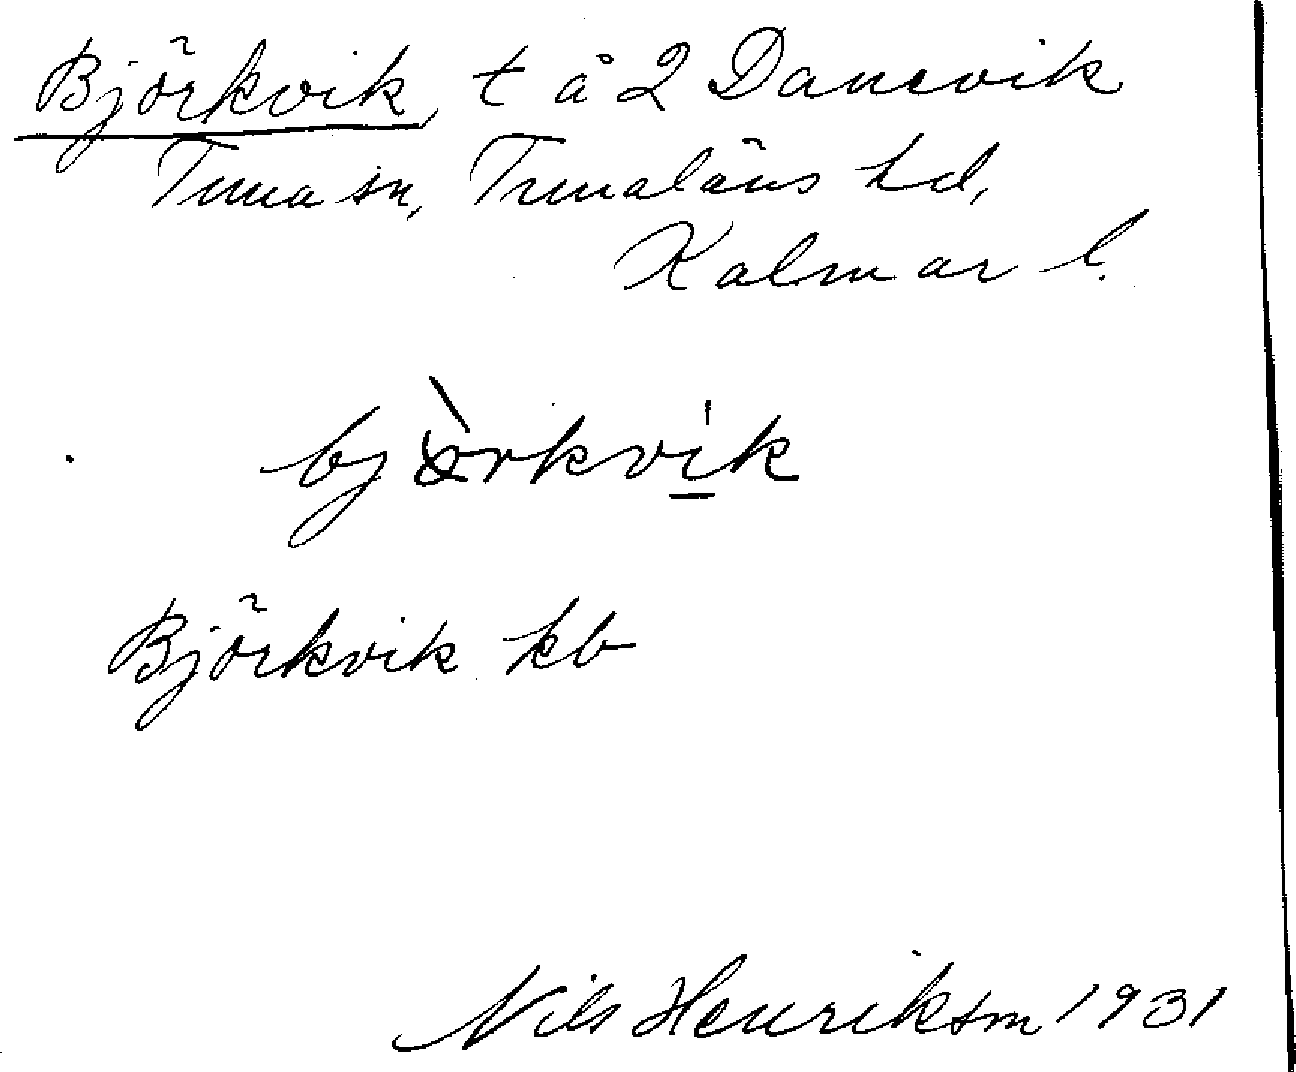 Björkvik, t å 2 Danevik
Tuna sn, Tunaläns hd,
Kalmar l.
bjòrkvik
Björkvik kb
Nils Henriksson 1931